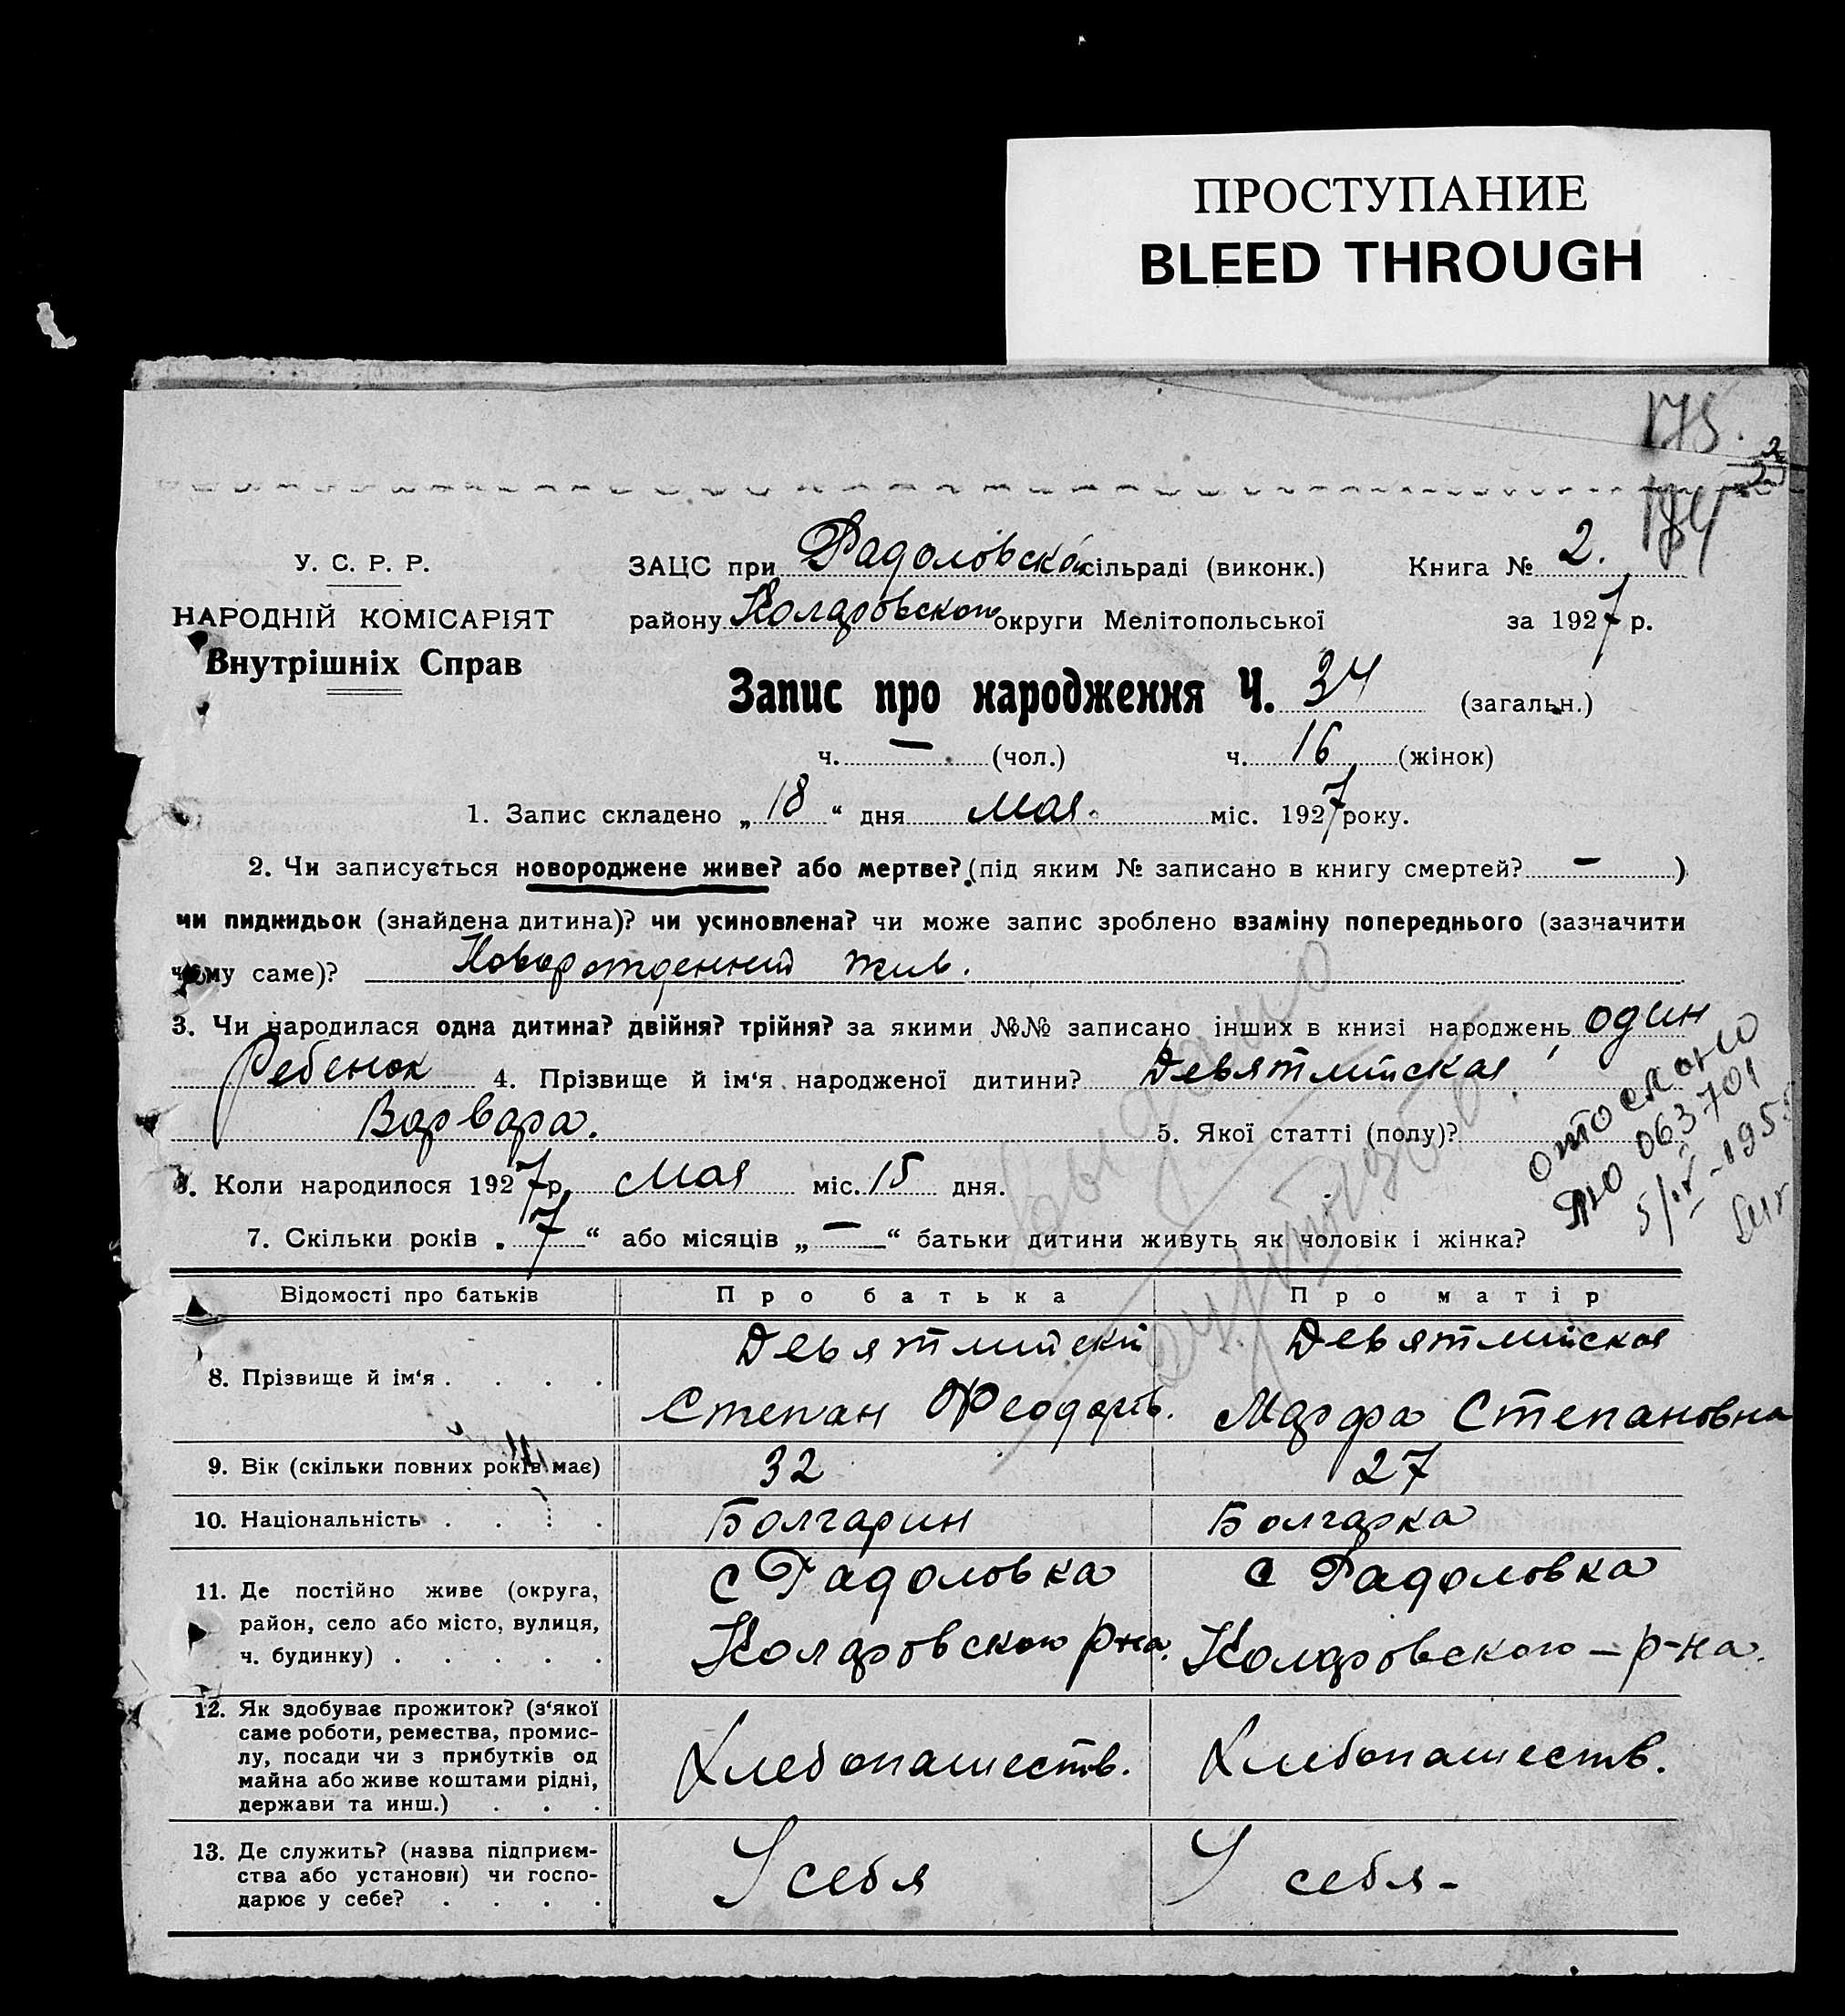 ПРОСТУПАНИЕ
BLEED THROUGH
175.
2
184
У. С. Р. Р.
НАРОДНІЙ КОМІСАРІЯТ
Внутрішніх Справ
ЗАЦС при Радоловской сільраді (виконк.) Книга № 2.
району Коларовского округи Мелітопольської за 1927 р.
Запис про народження Ч. 34 (загальн.)
ч. — (чол.) ч. 16 (жінок)
1. Запис складено „ 18 “ дня мая міс. 1927 року.
2. Чи записується новороджене живе? або мертве? (під яким № записано в книгу смертей? — )
чи пидкидьок (знайдена дитина)? чи усиновлена? чи може запис зроблено взаміну попереднього (зазначити
чому саме)? Новорожденний жив.
3. Чи народилася одна дитина? двійня? трійня? за якими №№ записано інших в книзі народжень один
Ребенок 4. Прізвище й ім‘я народженої дитини? Девятлийская
Варвара. 5. Якої статті (полу)?
6. Коли народилося 1927 р. Мая міс. 15 дня.
7. Скільки років „ 7 “ або місяців „ — “ батьки дитини живуть як чоловік і жінка?
отослано
ЯЮ 063701
5/IV-195
Выдано
Відомості про батьків Про батька Про матір
8. Прізвище й ім‘я . . . . Девятлийский Девятлийская
Степан Феодоров. Марфа Степановна
9. Вік (скільки повних років має) 32 27
10. Національність . . . . Болгарин Болгарка
11. Де постійно живе (округа, район, село або місто, вулиця, ч. будинку) . . . . . с Радоловка с Радоловка
Коларовского р-на. Коларовского — р-на.
12. Як здобуває прожиток? (з‘якої саме роботи, ремества, промислу, посади чи з прибутків од майна або живе коштами рідні, держави та инш.) . . . Хлебопашеств. Хлебопашеств.
13. Де служить? (назва підприємства або установи) чи господарює у себе? . . . . У себя У себя -